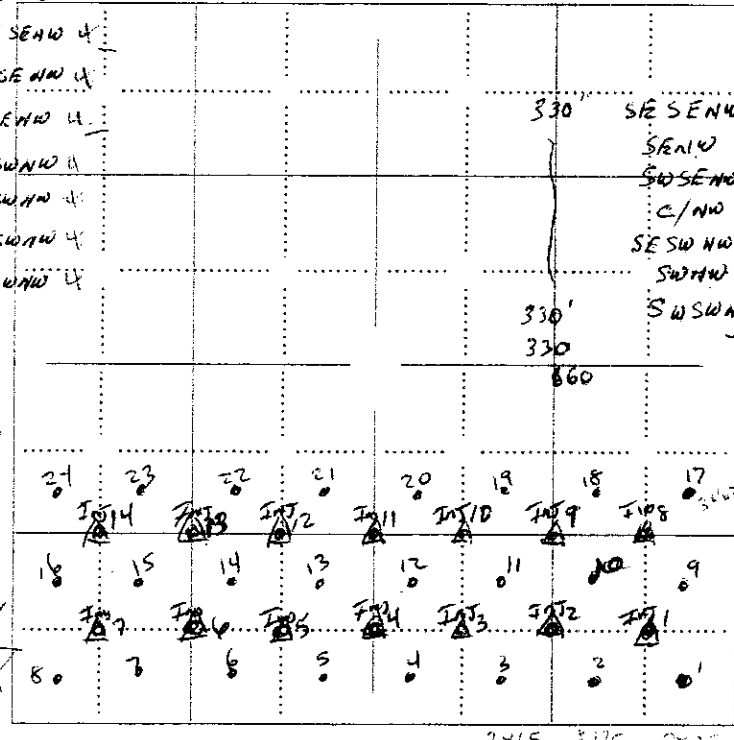 SENW 4
SE NW 4
ENW 4
SWNW 4
SWNW 4
SWNW 4
WNW 4
330' SE SENW
SENW
SWSENW
C/NW
SE SW NW
SWNW
330' SWSWN
330
660
24 23 22 21 20 19 18 17
INJ 14 INJ 13 INJ 12 INJ 11 INJ 10 INJ 9 INJ 8
16 15 14 13 12 11 10 9
INJ 7 INJ 6 INJ 5 INJ 4 INJ 3 INJ 2 INJ 1
8 7 6 5 4 3 2 1